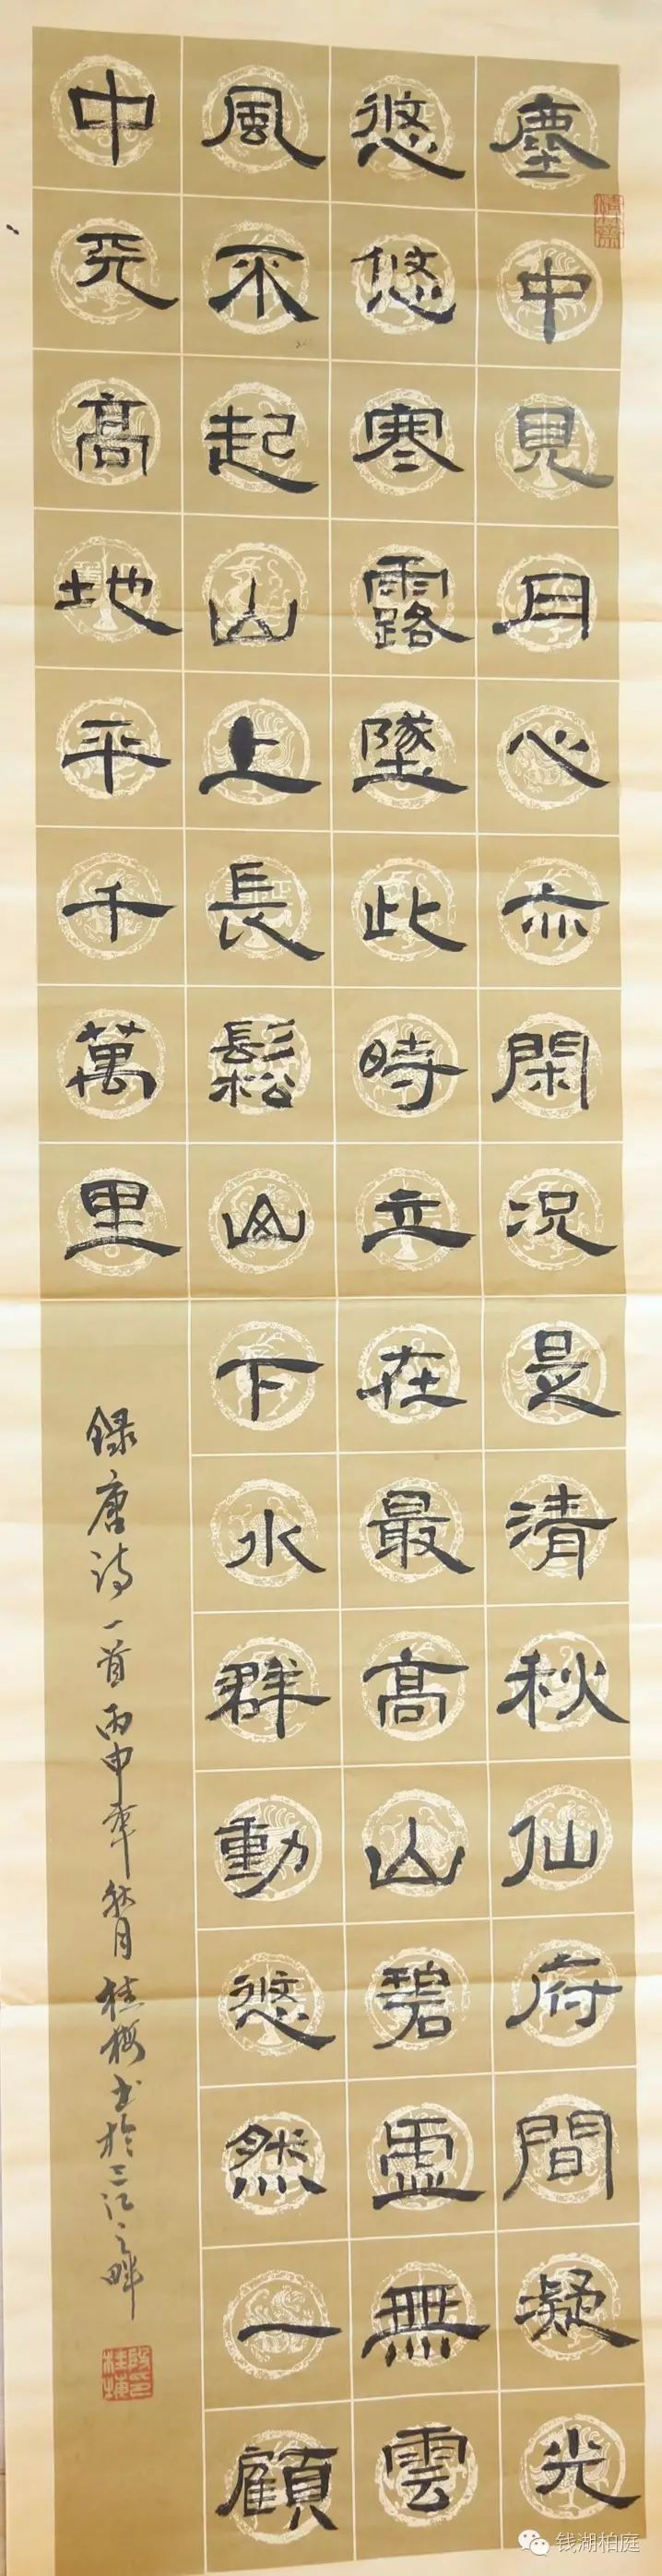 塵中見月心亦閑況是清秋仙府間凝光
悠悠寒露墜此時立在最高山碧虛無雲
風不起山上長鬆山下水群動悠然一顧
中天高地平千萬里
録唐詩一首丙申年秋月桂梅書於三江之畔
钱湖柏庭